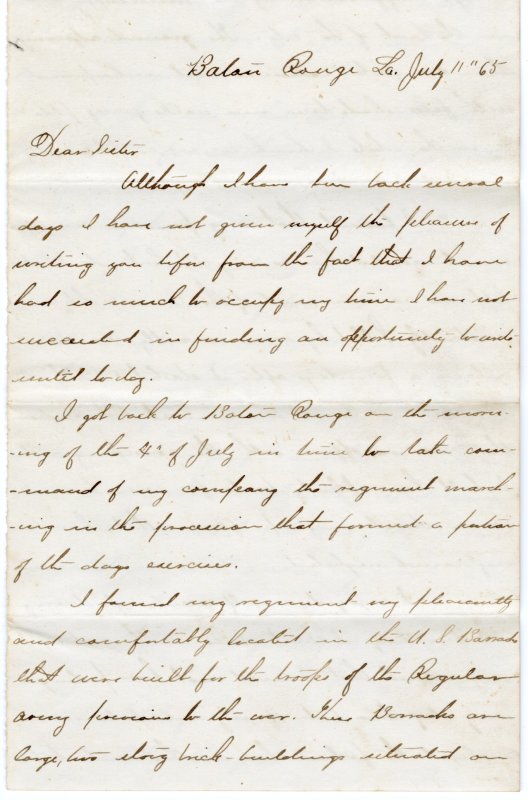 Baton Rouge La. July 11" 65
Dear Sister
Although I have been back several
days I have not given myself the pleasure of
writing you before from the fact that I have
had so much to occupy my time I have not
succeeded in finding an opportunity to write
until to day.
I got back to Baton Rouge on the morn-
-ing of the 4" of July in time to take com-
-mand of my company the regiment march-
-ing in the procession that formed a portion
of the days exercises.
I found my regiment very pleasantly
and comfortably located in the U. S. Barracks
that were built for the troops of the Regular
army previous to the war. These Barracks are
large, two story brick-buildings situated on